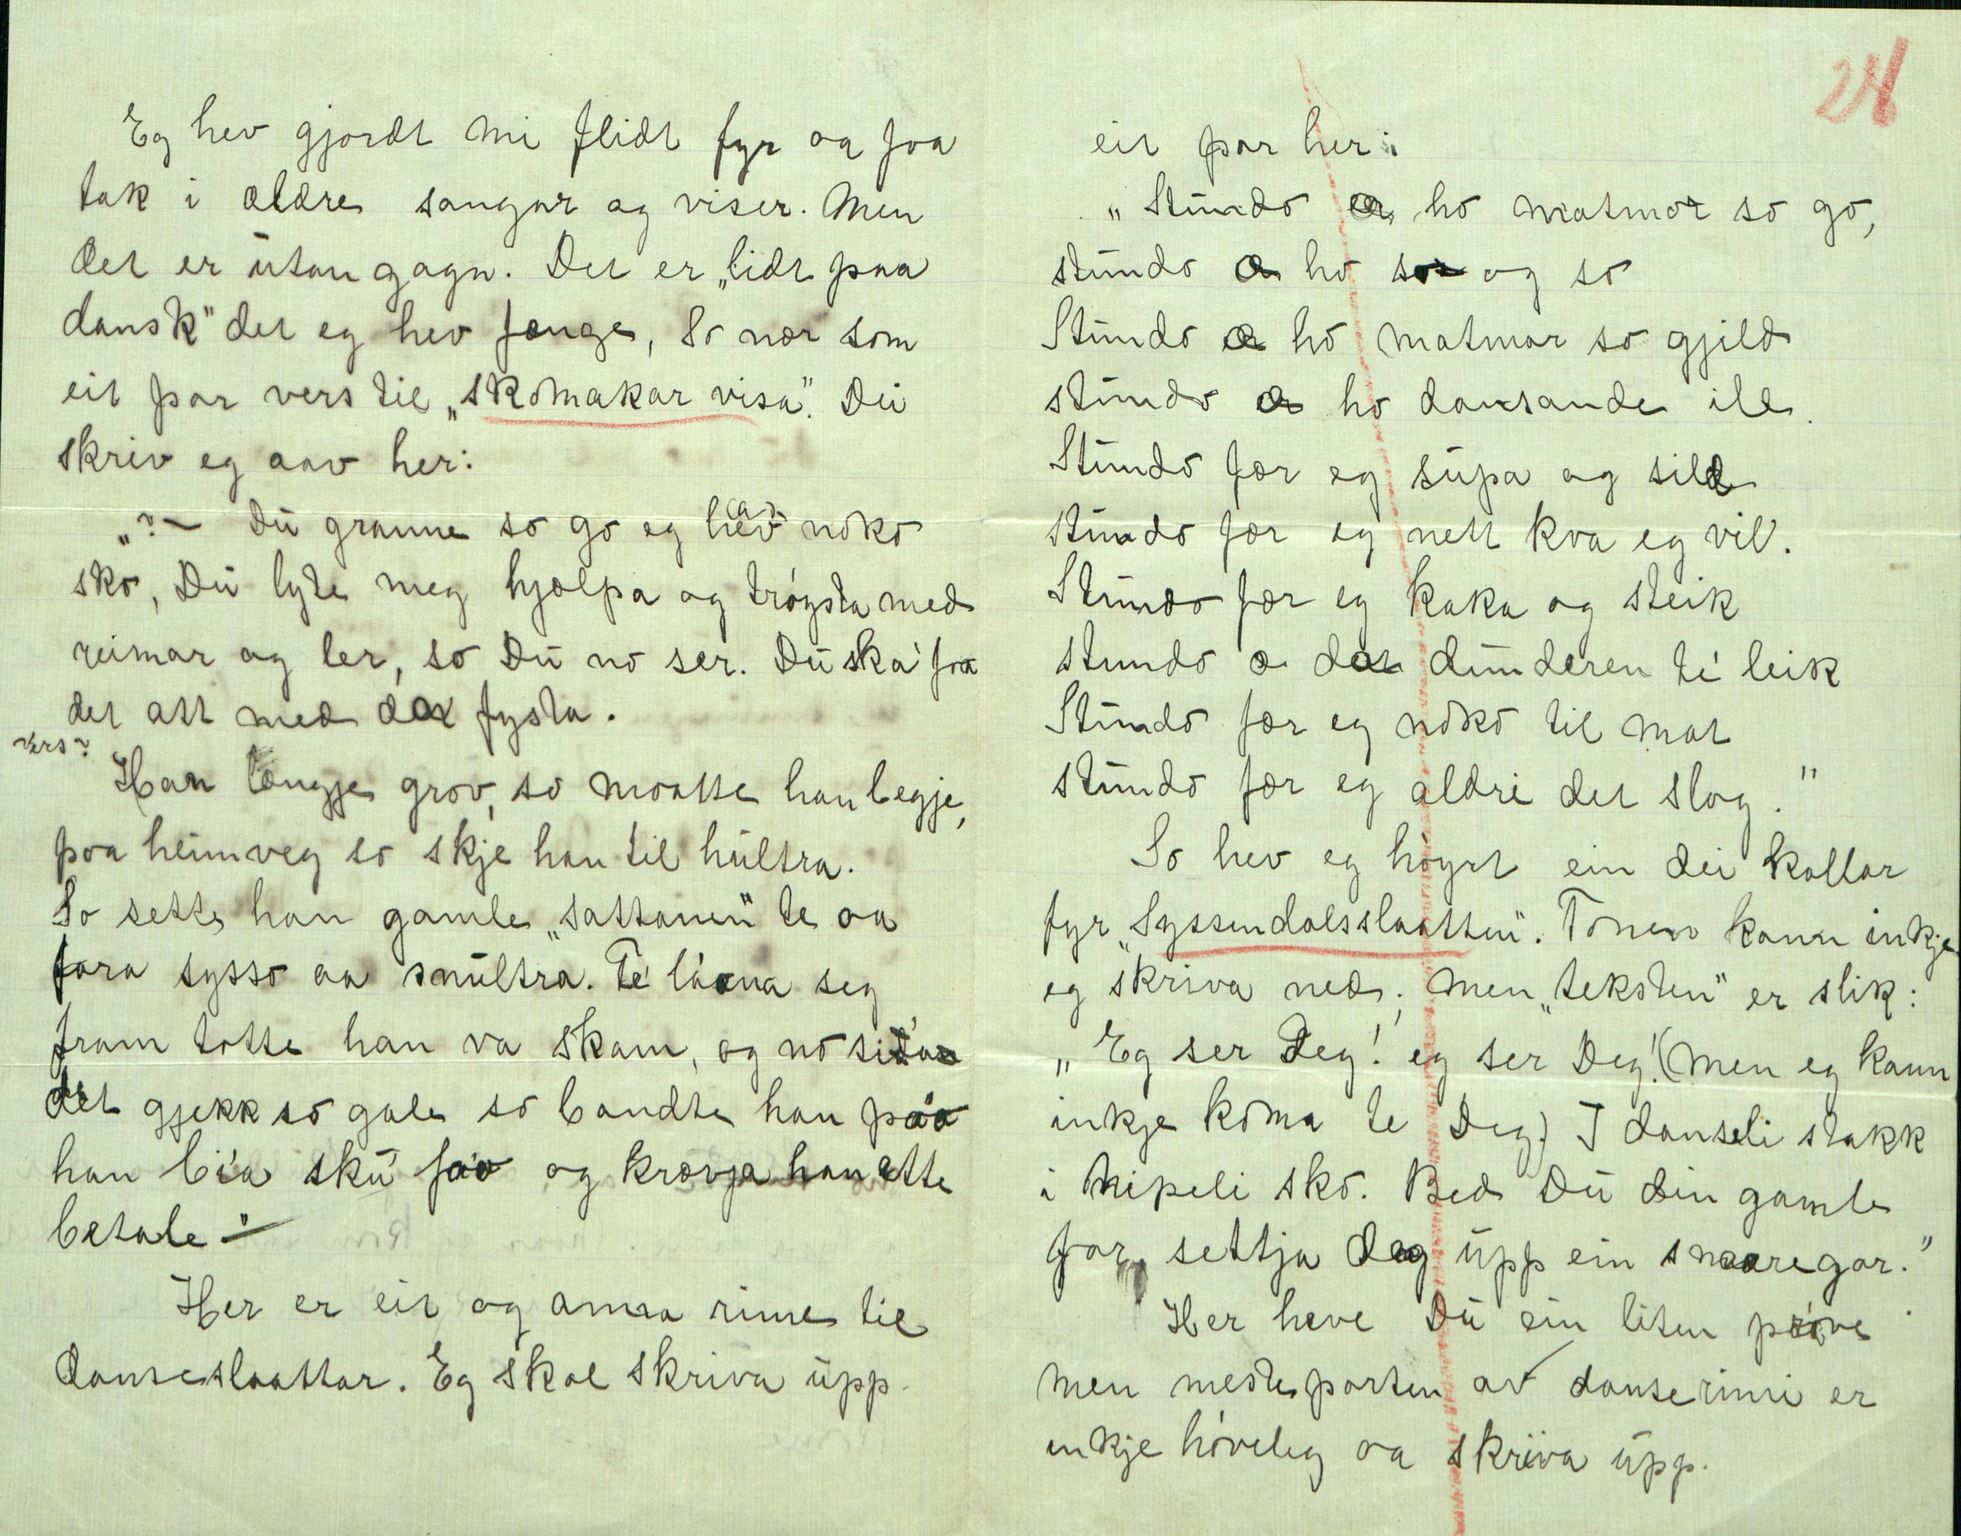 Eg hev gjordt mi flidt fyr aa faa
tak i ældre sangar og viser. Men
det er utan gagn. Det er „lidt paa
dansk" det eg hev fænge, So nær som
eit par vers til „skomakar visa". Dei
skriv eg aav her:
„?— Du granne so go eg hev noko
sko, Du lyte meg hjælpa og trøysta med
reimar og ler, so Du no ser. Du ska faa
det att med dæ fysta.
vers?
Han længje grov, so maatte han begje,
paa heimveg so skje han til hultra.
So sette han gamle „sattanen" te aa
fara sysso aa snultra. Te låna seg
fram totte han va skam, og no sidan
det gjekk so gale so bandte han paa
han bia sku faa og krævja han ette
betale —"
Her er eit og anna rime til
danseslaattar. Eg skal skriva upp
24
eit par her:
„Stundo æ ho matmor so go,
stundo æ ho so og so
Stundo æ ho matmor so gjild
stundo æ ho dansande ill
Stundo fær eg supa og sild
stundo fær eg nett kva eg vil.
Stundo fær eg kaka og steik
stundo æ dæ dunderen te leik
Stundo fær eg noko til mat
stundo fær eg aldri det slag."
So hev eg høyrt ein dei kallar
fyr „Syssendalsslaatten". Tonen kann inkje
eg skriva ned; men „teksten" er slik:
„Eg ser Deg! eg ser Deg! (men eg kann
inkje koma te Deg) I danseli stakk
i nipeli sko. Bed Du din gamle
far, settja deg upp ein snaregar."
Her heve Du ein liten prøve
men mesteparten av danserimi er
inkje høveleg aa skriva upp.